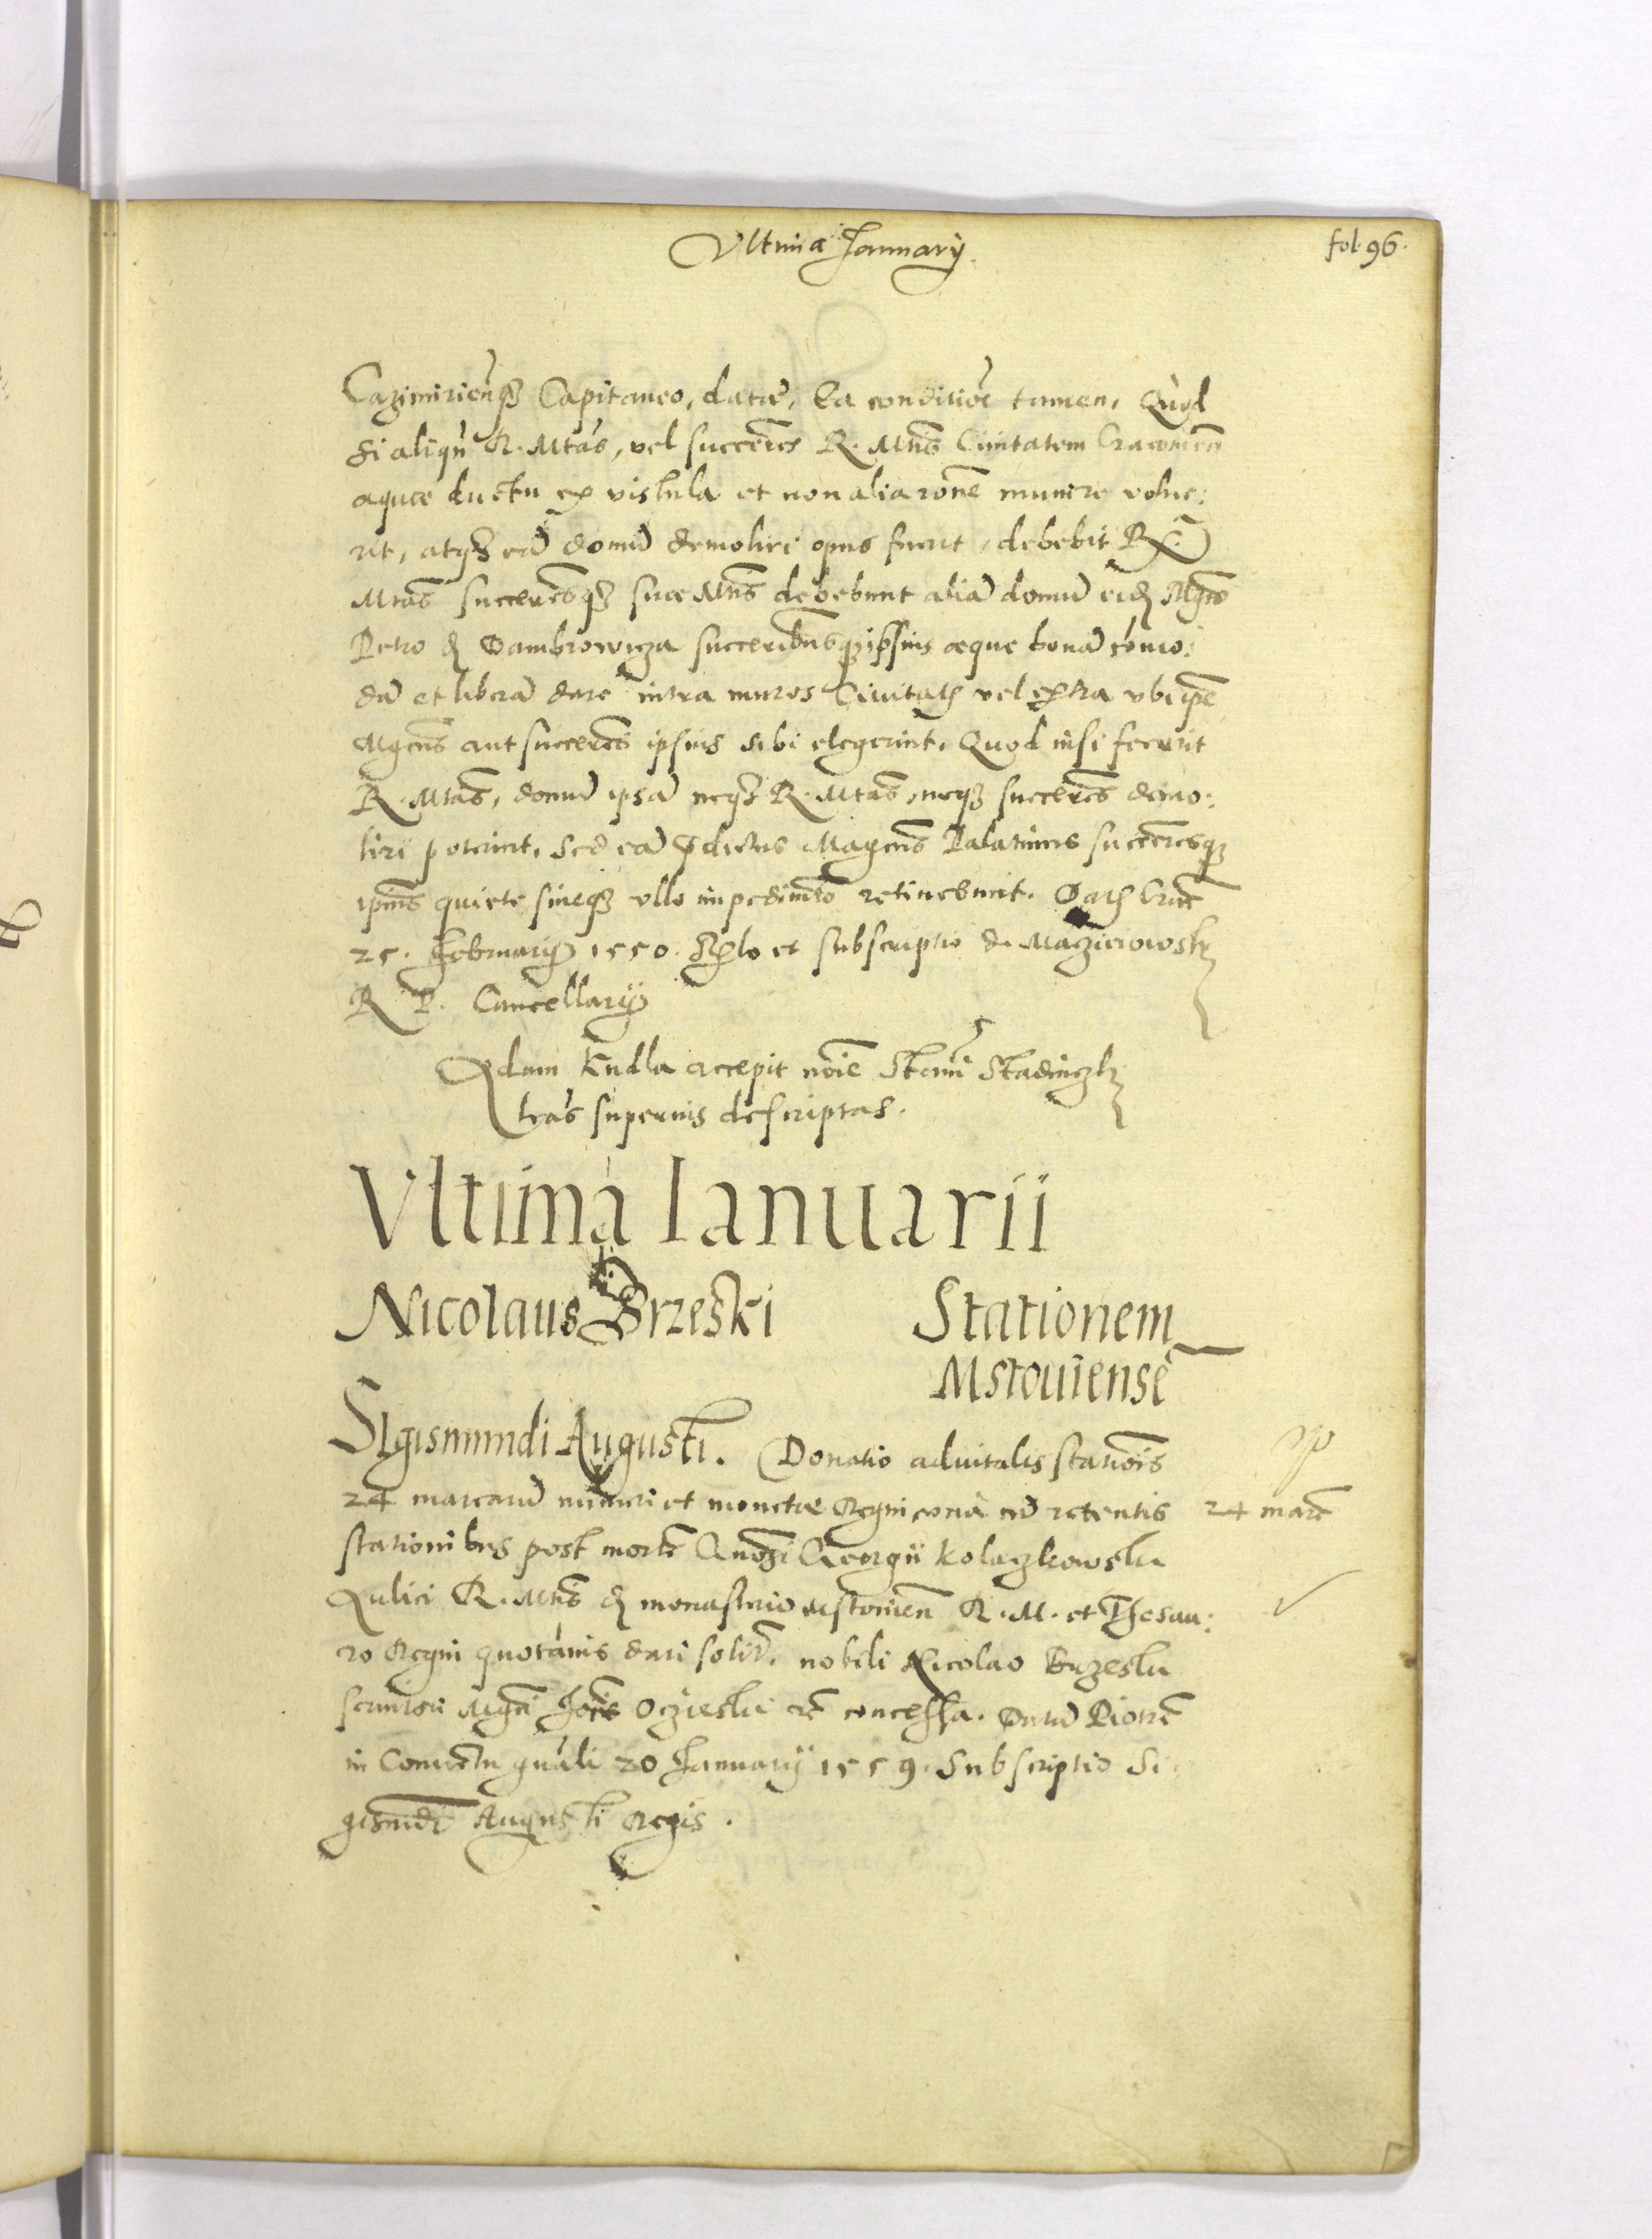 Vltima Januarÿ
fol. 96.
Cazimirien̄q₃ Capitaneo, datæ, Ea conditiōe tamen, Quod
si aliqn̄ R. Mtās, vel succēres R. Mtīs Ciuitatem Cracouieñ
aquæ ductu ex vistula et non alia rōne munire volue:
rit, atq₃ eā domū demolire opus fuerit, debebit Rx̄
Mtās succerēsq₃ suæ Mtīs debebunt aliā domū eidē Mgco
Petro de Dambrowicza succeribusq₃ ipsius æque bonā com̄o:
dā et liberā dare intra muros Ciuitatis vel extra vbi ipse
Mgcus aut succerēs ipsius sibi elegerint. Quod nisi fecerit
R. Mtās, domū ipsā neq₃ R. Mtās, neq₃ succerēs demo:
liri poterint. Sed eā p̄dictus Magcus Palatinus succerēsq₃
ipius quiete sineq₃ vllo impedimēto retinebunt. Datū Crac̄
25. Februarÿ 1550. Sigillo et subscriptio d. Maczieiowski
R P. Cancellarÿ
Adam Kudla accepit noīe Stani Stadniczki
lrās superius descriptas.
Vltima Ianuarii
Nicolaus Brzeski
Stationem
Mstouiensē
Sigismundi Augusti. Donatio aduitalis statiōis
24 marcarū numeri et monetæ Regni cum retentis
24 marc̄
stationibus post mortē Gn̄osi Georgii Kolaczkowski
Aulici R. Mtīs de monasterio Mstouien̄ R. M. et Thesau:
ro Regni quotānis dari solit. nobili Nicolao Brzeski
seruitori Mgci Joīs Oczieski concessa. Datū Piotrc̄
in Conuētu gnāli 20 Januarÿ 1559. Subscriptio Si
gismūdi Augusti Regis.